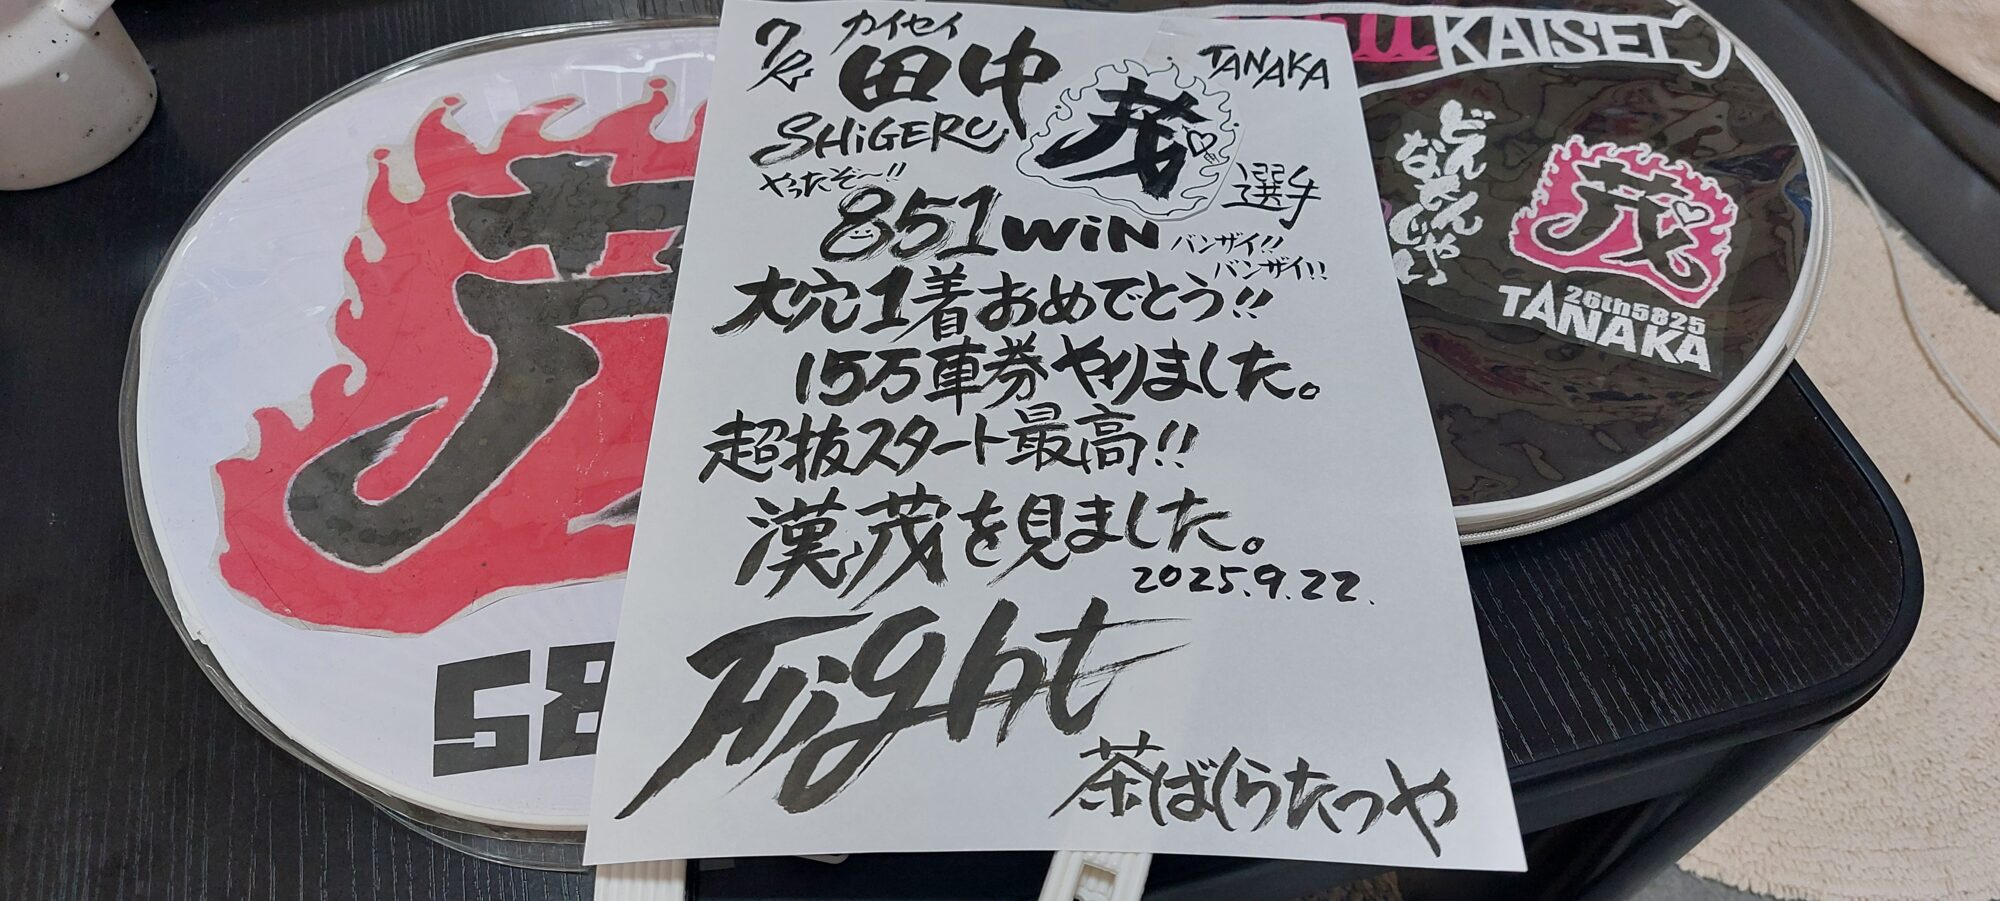 カイセイ
田中
TANAKA
SHiGERU
茂
選手
やったぞ〜!!
851WiN
バンザイ!!
バンザイ!!
大穴1着おめでとう!!
15万車券やりました。
超抜スタート最高!!
漢茂を見ました。
2025.9.22.
Fight
茶ばしらたつや
58
KAISEI
茂
26th5825
TANAKA